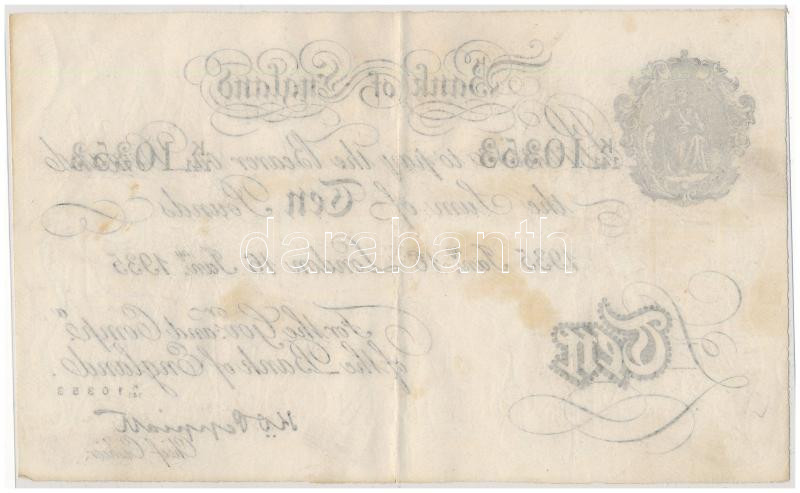 Bank of England
10353 to pay the Bearer on 10353
the Sum of Ten Pounds
1935 Jan.y 16 London 16 Jan.y 1935
For the Gov.r and Comp.a
of the Bank of England.
10353
£Ten
K O Peppiatt
Chief Cashier.
darabanth